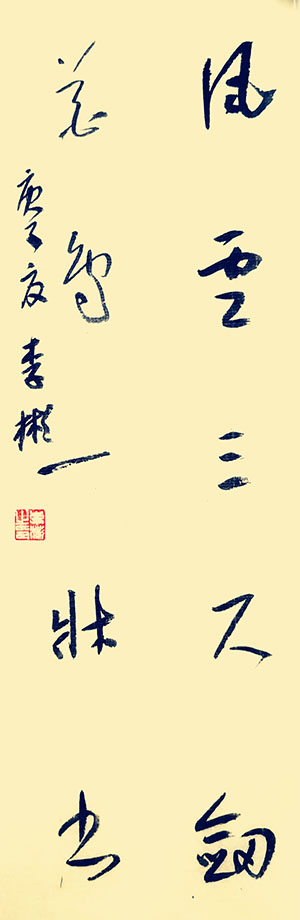 風雲三尺劒
花鳥一牀書
庚子夏李彬